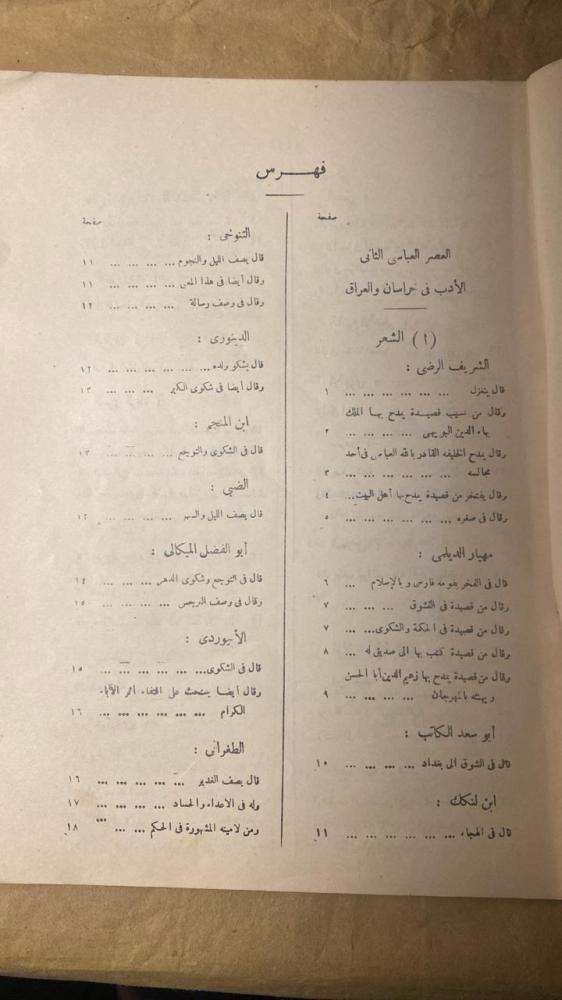 فهــرس
صفحة
العصر العباسى الثانى
الأدب فى خراسان والعراق
(١) الشعر
الشريف الرضى :
قال يتغزل ... ... ... ... ... ... ١
وقال من نسيب قصيدة يمدح بها الملك
بهاء الدين البويهى ... ... ... ... ٢
وقال يمدح الخليفه القادر بالله العباسى فى أحد
مجالسه ... ... ... ... ... ... ٣
وقال يفتخر من قصيدة يمدح بها أهل البيت... ٤
وقال فى صفره ... ... ... ... ... ... ٥
مهيار الديلمى :
قال فى الفخر بقومه فارس وبالإسلام ... ٦
وقال من قصيدة فى التشوق ... ... ... ٧
وقال من قصيدة فى الحكمة والشكوى... ... ٧
وقال من قصيدة كتب بها الى صديق له ... ٨
وقال من قصيدة يمدح بها زعيم الدين أبا الحسن
ويهنئه بالمهرجان ... ... ... ... ٩
أبو سعد الكاتب :
قال فى الشوق الى بغداد ... ... ... ... ١٠
ابن لنكك :
قال فى الهجاء ... ... ... ... ... ... ١١
صفحة
التنوخى :
قال يصف الليل والنجوم ... ... ... ... ١١
وقال أيضا فى هذا المعنى ... ... ... ... ١١
وقال فى وصف رسالة ... ... ... ... ١٢
الدينورى :
قال يشكو ولده... ... ... ... ... ... ١٢
وقال أيضا فى شكوى الكبر ... ... ... ١٣
ابن المنجم :
قال فى الشكوى والتوجع ... ... ... ... ١٣
الضبي :
قال يصف الليل والسهر ... ... ... ...
أبو الفضل الميكالى :
قال فى التوجع وشكوى الدهر ... ... ... ١٤
وقال فى وصف النرجس ... ... ... ... ١٥
الأبيوردى :
قال فى الشكوى... ... ... ... ... ... ١٥
وقال أيضا يستحث على اقتفاء أثر الآباء
الكرام ... ... ... ... ... ... ١٦
الطغرائى :
قال يصف الغدير ... ... ... ... ... ١٦
وله فى الاعداء والحساد ... ... ... ... ١٧
ومن لاميته المشهورة فى الحكم ... ... ... ١٨